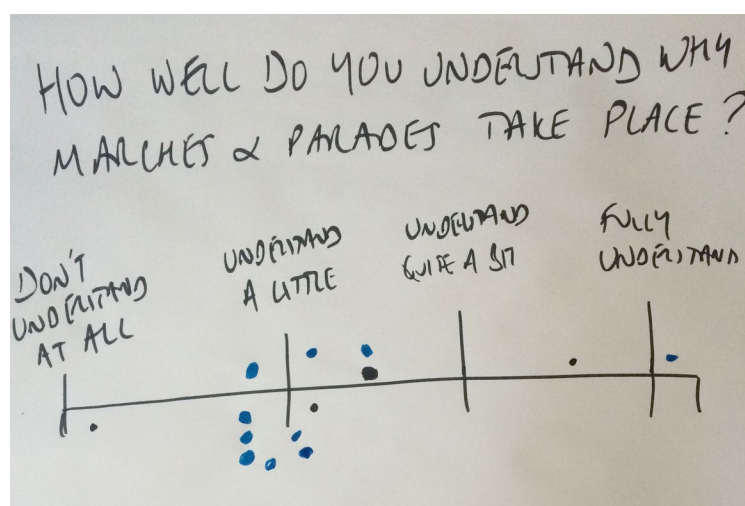 HOW WELL DO YOU UNDERSTAND WHY
MARCHES & PARADES TAKE PLACE?
DON'T
UNDERSTAND
AT ALL
UNDERSTAND
A LITTLE
UNDERSTAND
QUITE A BIT
FULLY
UNDERSTAND